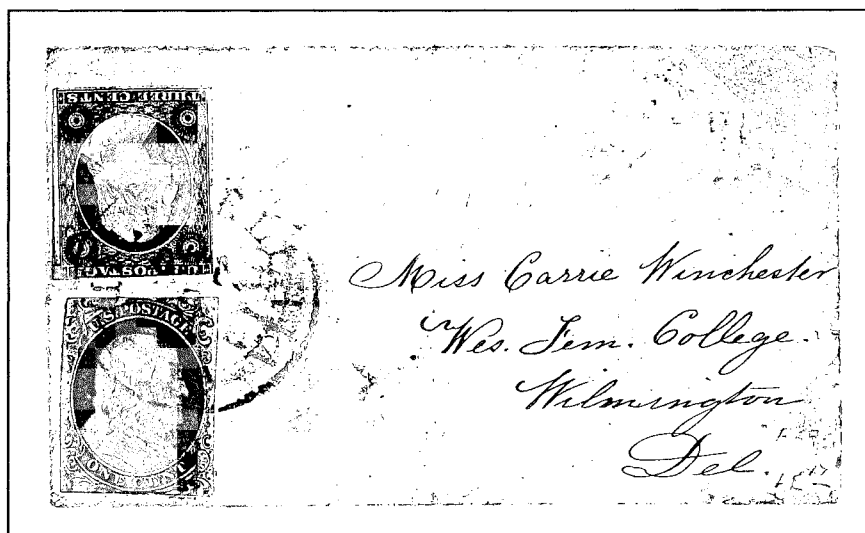 THREE CENTS
U.S. POSTAGE
U.S. POSTAGE
ONE CENT
Miss Carrie Winchester
Wes. Fem. College.
Wilmington
Del.